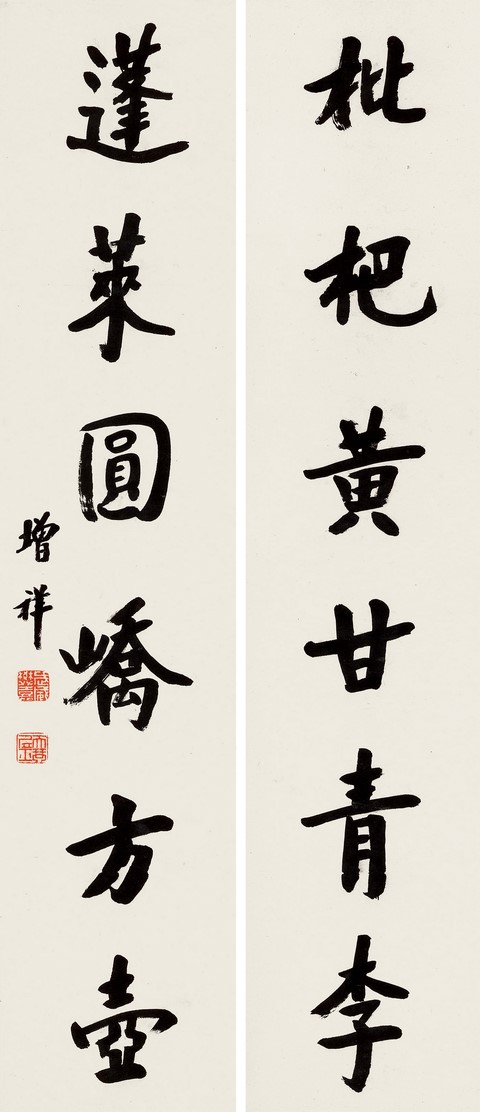 枇杷黃甘青李
蓬萊圓嶠方壺
增祥